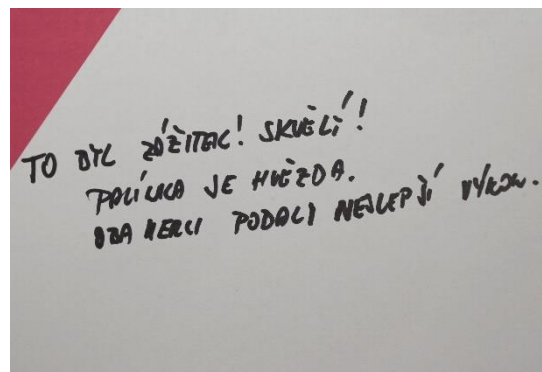 TO BYL ZÁŽITEK! SKVĚLÍ!
PALIČKA JE HVĚZDA.
OBA HERCI PODALI NEJLEPŠÍ VÝKON.